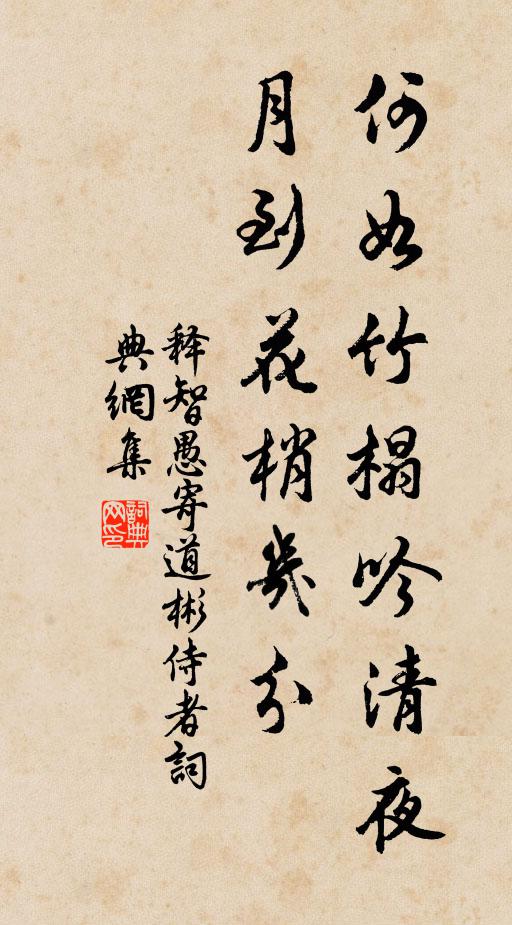 何如竹榻吟清夜
月到花梢几分
释智愚寄道彬侍者詞
典網集
詞典
网印